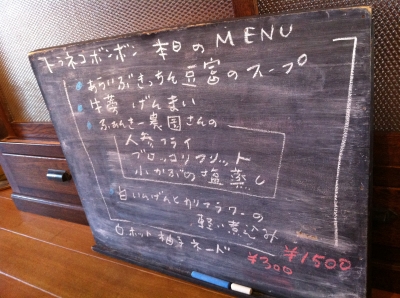 トラネコボンボン 本日の MENU
あらいぶきっちん豆富のスープ
牛蒡 げんまい
ふぁんきー農園さんの
人参フライ
ブロッコリフリット
小かぶの塩蒸し
白いんげんとカリフラワーの
軽い煮込み
¥1500
ホット柚子ネード
¥300